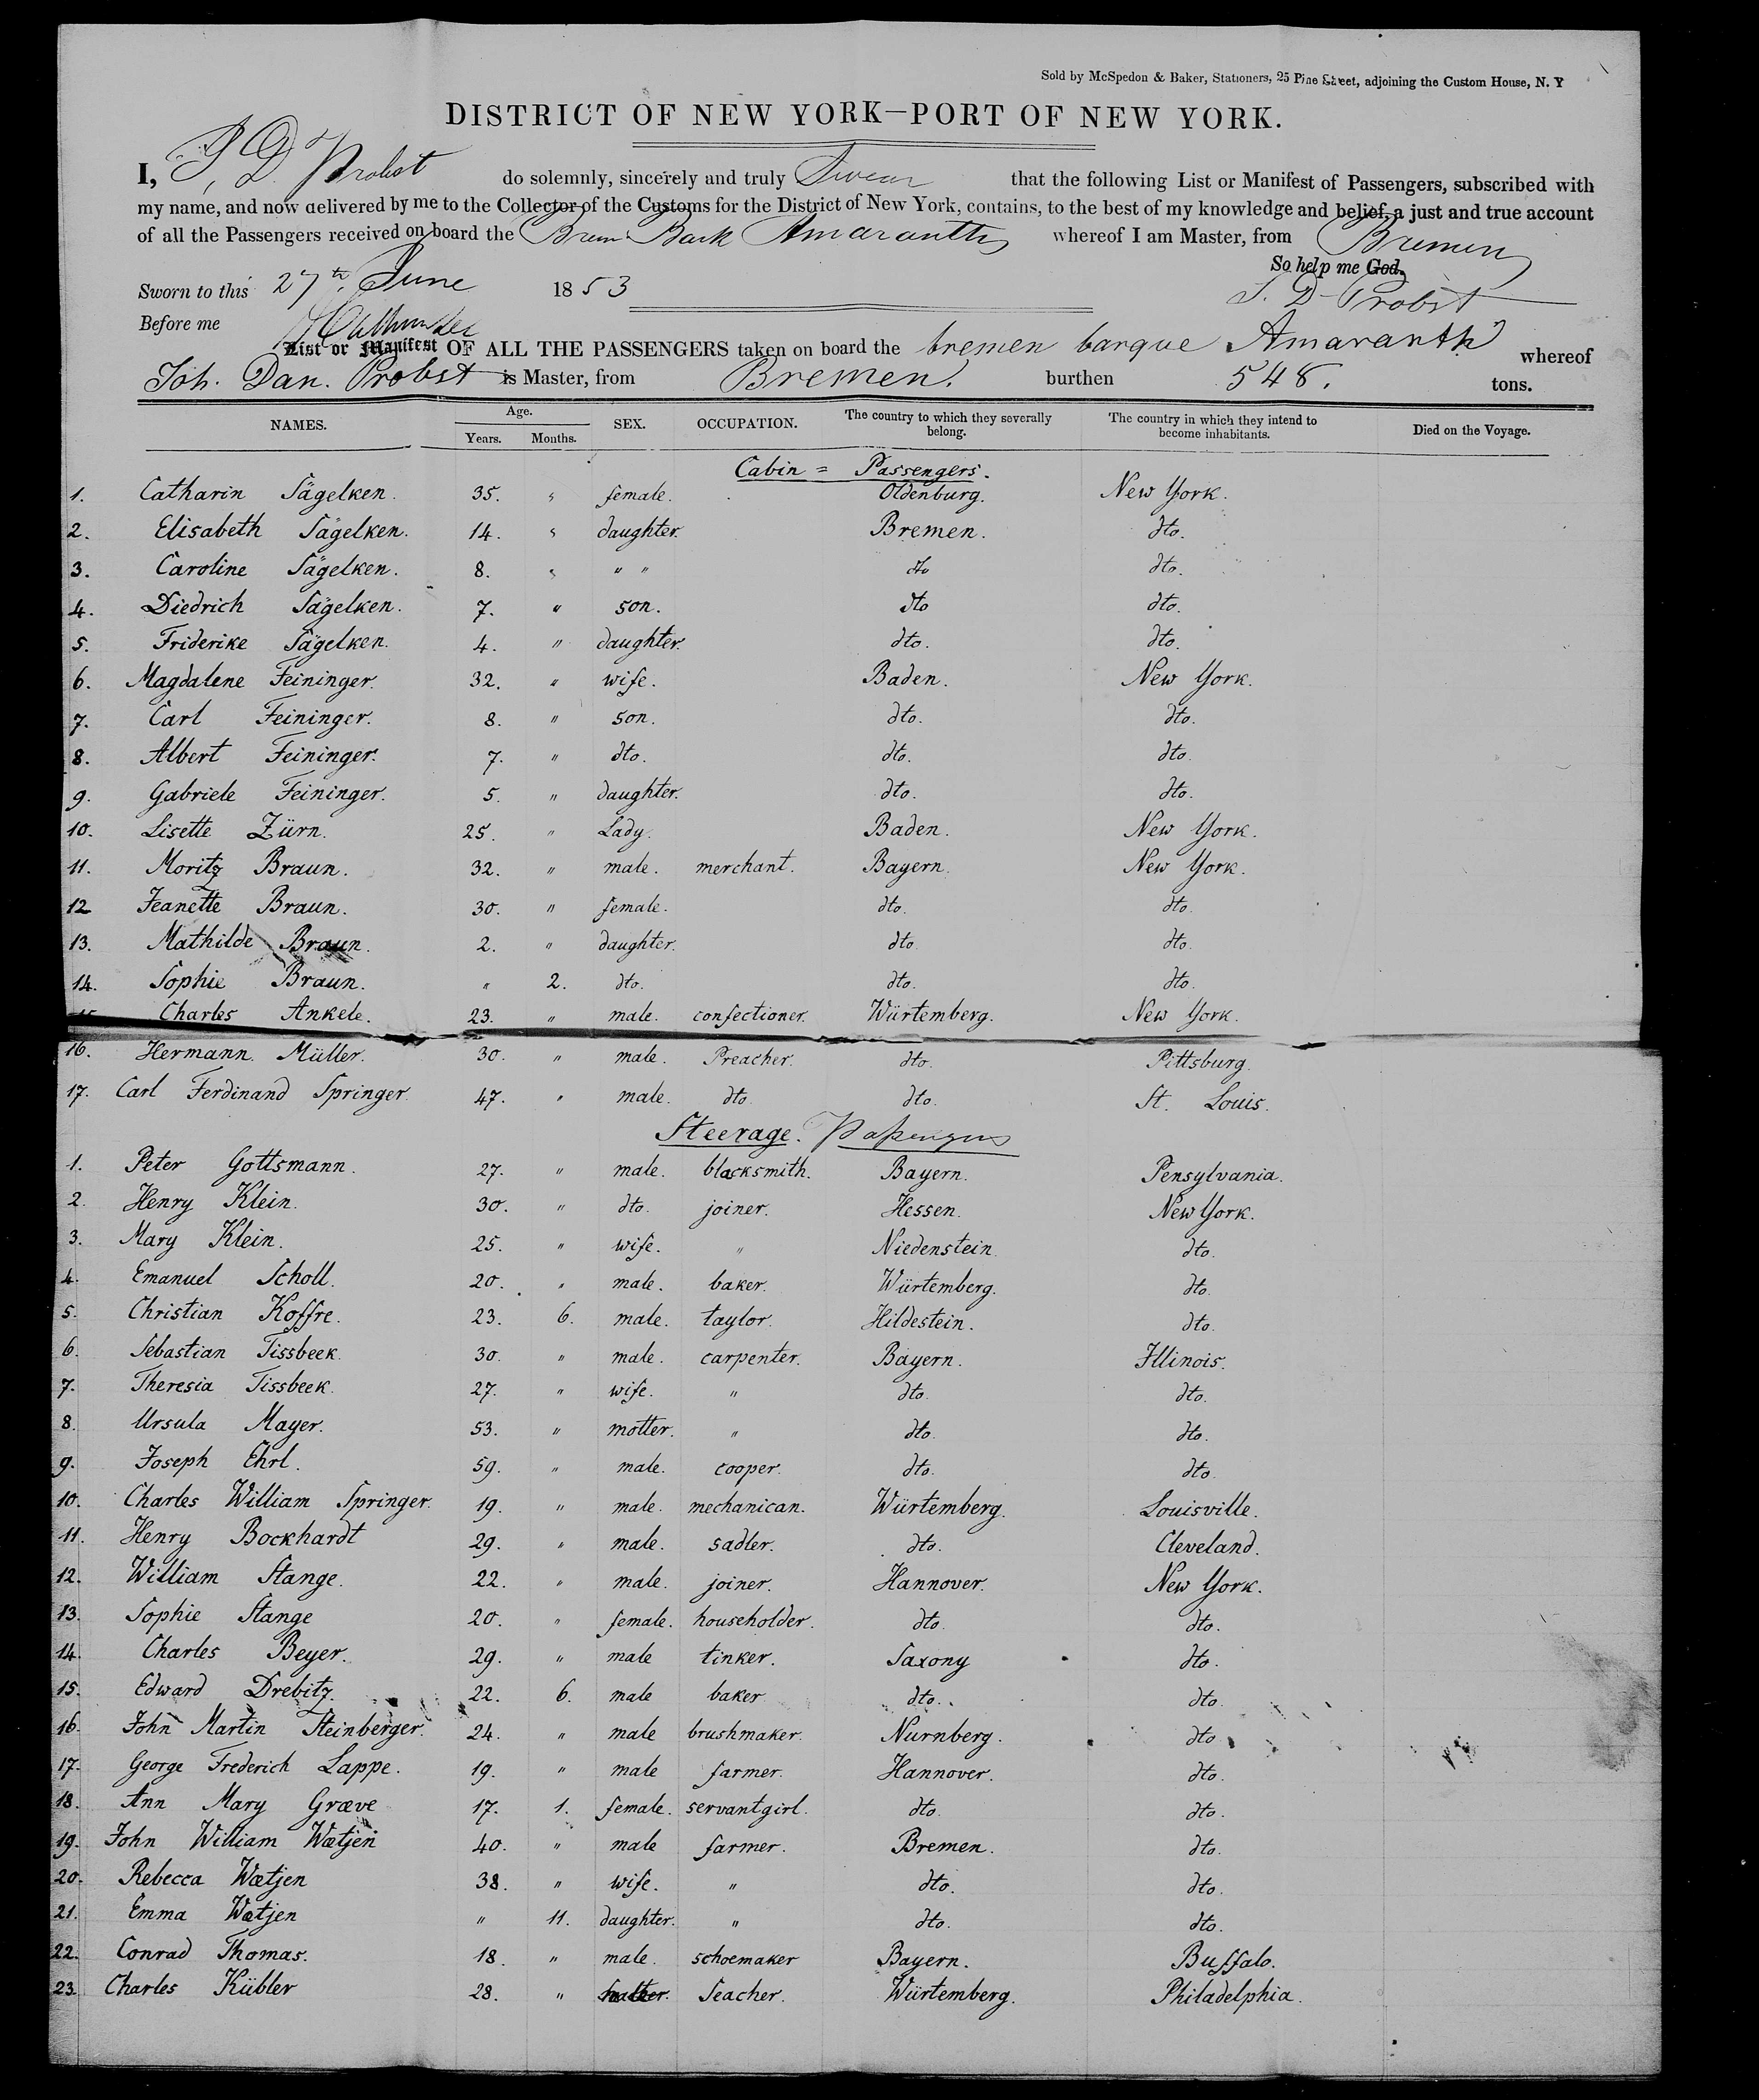 Sold by McSpedon & Baker, Stationers, 25 Pine Street, adjoining the Custom House, N. Y
DISTRICT OF NEW YORK—PORT OF NEW YORK.
I, J. D. Probst do solemnly, sincerely and truly Swear that the following List or Manifest of Passengers, subscribed with
my name, and now delivered by me to the Collector of the Customs for the District of New York, contains, to the best of my knowledge and belief, a just and true account
of all the Passengers received on board the Brem Bark Amaranth whereof I am Master, from Bremen
So help me God.
Sworn to this 27th June 1853 J. D. Probst
Before me
List or Manifest OF ALL THE PASSENGERS taken on board the bremen barque Amaranth whereof
Joh. Dan. Probst is Master, from Bremen. burthen 548. tons.
NAMES. Age. SEX. OCCUPATION. The country to which they severally belong. The country in which they intend to become inhabitants. Died on the Voyage.
Years. Months.
Cabin = Passengers.
1. Catharin Sägelken. 35. " female. Oldenburg. New York.
2. Elisabeth Sägelken. 14. " daughter. Bremen. dto.
3. Caroline Sägelken. 8. " " " dto dto.
4. Diedrich Sägelken. 7. " son. dto dto.
5. Friderike Sägelken. 4. " daughter. dto. dto.
6. Magdalene Feininger. 32. " wife. Baden. New York.
7. Carl Feininger. 8. " son. dto. dto.
8. Albert Feininger. 7. " dto. dto. dto.
9. Gabriele Feininger. 5. " daughter. dto. dto.
10. Lisette Zürn. 25. " Lady. Baden. New York.
11. Moritz Braun. 32. " male. merchant. Bayern. New York.
12 Jeanette Braun. 30. " female. dto. dto.
13. Mathilde Braun. 2. " daughter. dto. dto.
14. Sophie Braun. " 2. dto. dto. dto.
15 Charles Ankele. 23. " male. confectioner. Würtemberg. New York.
16. Hermann Müller. 30. " male. Preacher. dto. Pittsburg.
17. Carl Ferdinand Springer. 47. " male. dto. dto. St. Louis.
Steerage. Passengers
1. Peter Gottsmann. 27. " male. blacksmith. Bayern. Pensylvania.
2. Henry Klein. 30. " dto. joiner. Hessen. New York.
3. Mary Klein. 25. " wife. " Niedenstein dto.
4. Emanuel Scholl. 20. " male. baker. Würtemberg. dto.
5. Christian Koffre. 23. 6. male. taylor. Hildestein. dto.
6. Sebastian Tissbeek. 30. " male. carpenter. Bayern. Illinois.
7. Theresia Tissbeek. 27. " wife. " dto. dto.
8. Ursula Mayer. 53. " motter. " dto. dto.
9. Joseph Ehrl. 59. " male. cooper. dto. dto.
10. Charles William Springer. 19. " male. mechanican. Würtemberg. Louisville.
11. Henry Bockhardt 29. " male. sadler. dto. Cleveland.
12. William Stange. 22. " male. joiner. Hannover. New York.
13. Sophie Stange 20. " female. householder. dto. dto.
14. Charles Beyer. 29. " male tinker. Saxony dto.
15. Edward Drebitz. 22. 6. male baker dto. dto.
16. John Martin Steinberger. 24. " male brushmaker. Nurnberg. dto
17. George Frederich Lappe. 19. " male farmer. Hannover. dto.
18. Ann Mary Græve 17. 1. female. servantgirl. dto. dto.
19. John William Wætjen 40. " male farmer. Bremen. dto.
20. Rebecca Wætjen 38. " wife. " dto. dto.
21. Emma Wætjen " 11. daughter. " dto. dto.
22. Conrad Thomas. 18. " male. schoemaker Bayern. Buffalo.
23. Charles Kübler 28. " Teacher. Würtemberg. Philadelphia.